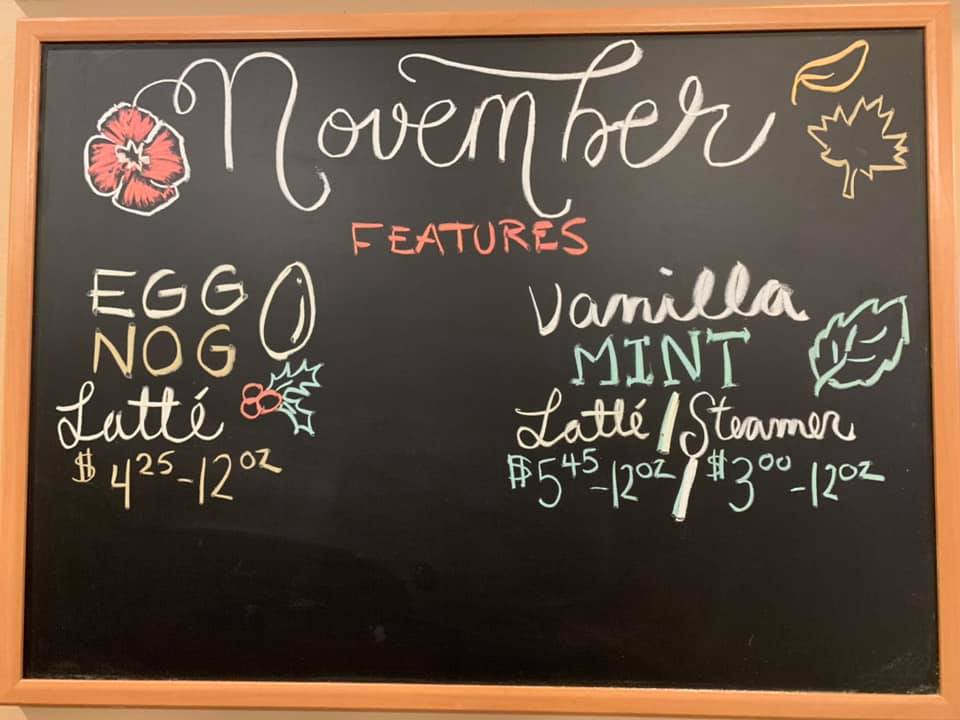 November
FEATURES
EGG
NOG
Latté
$4.25-12oz
Vanilla
MINT
Latté / Steamer
$5.45-12oz / $3.00-12oz